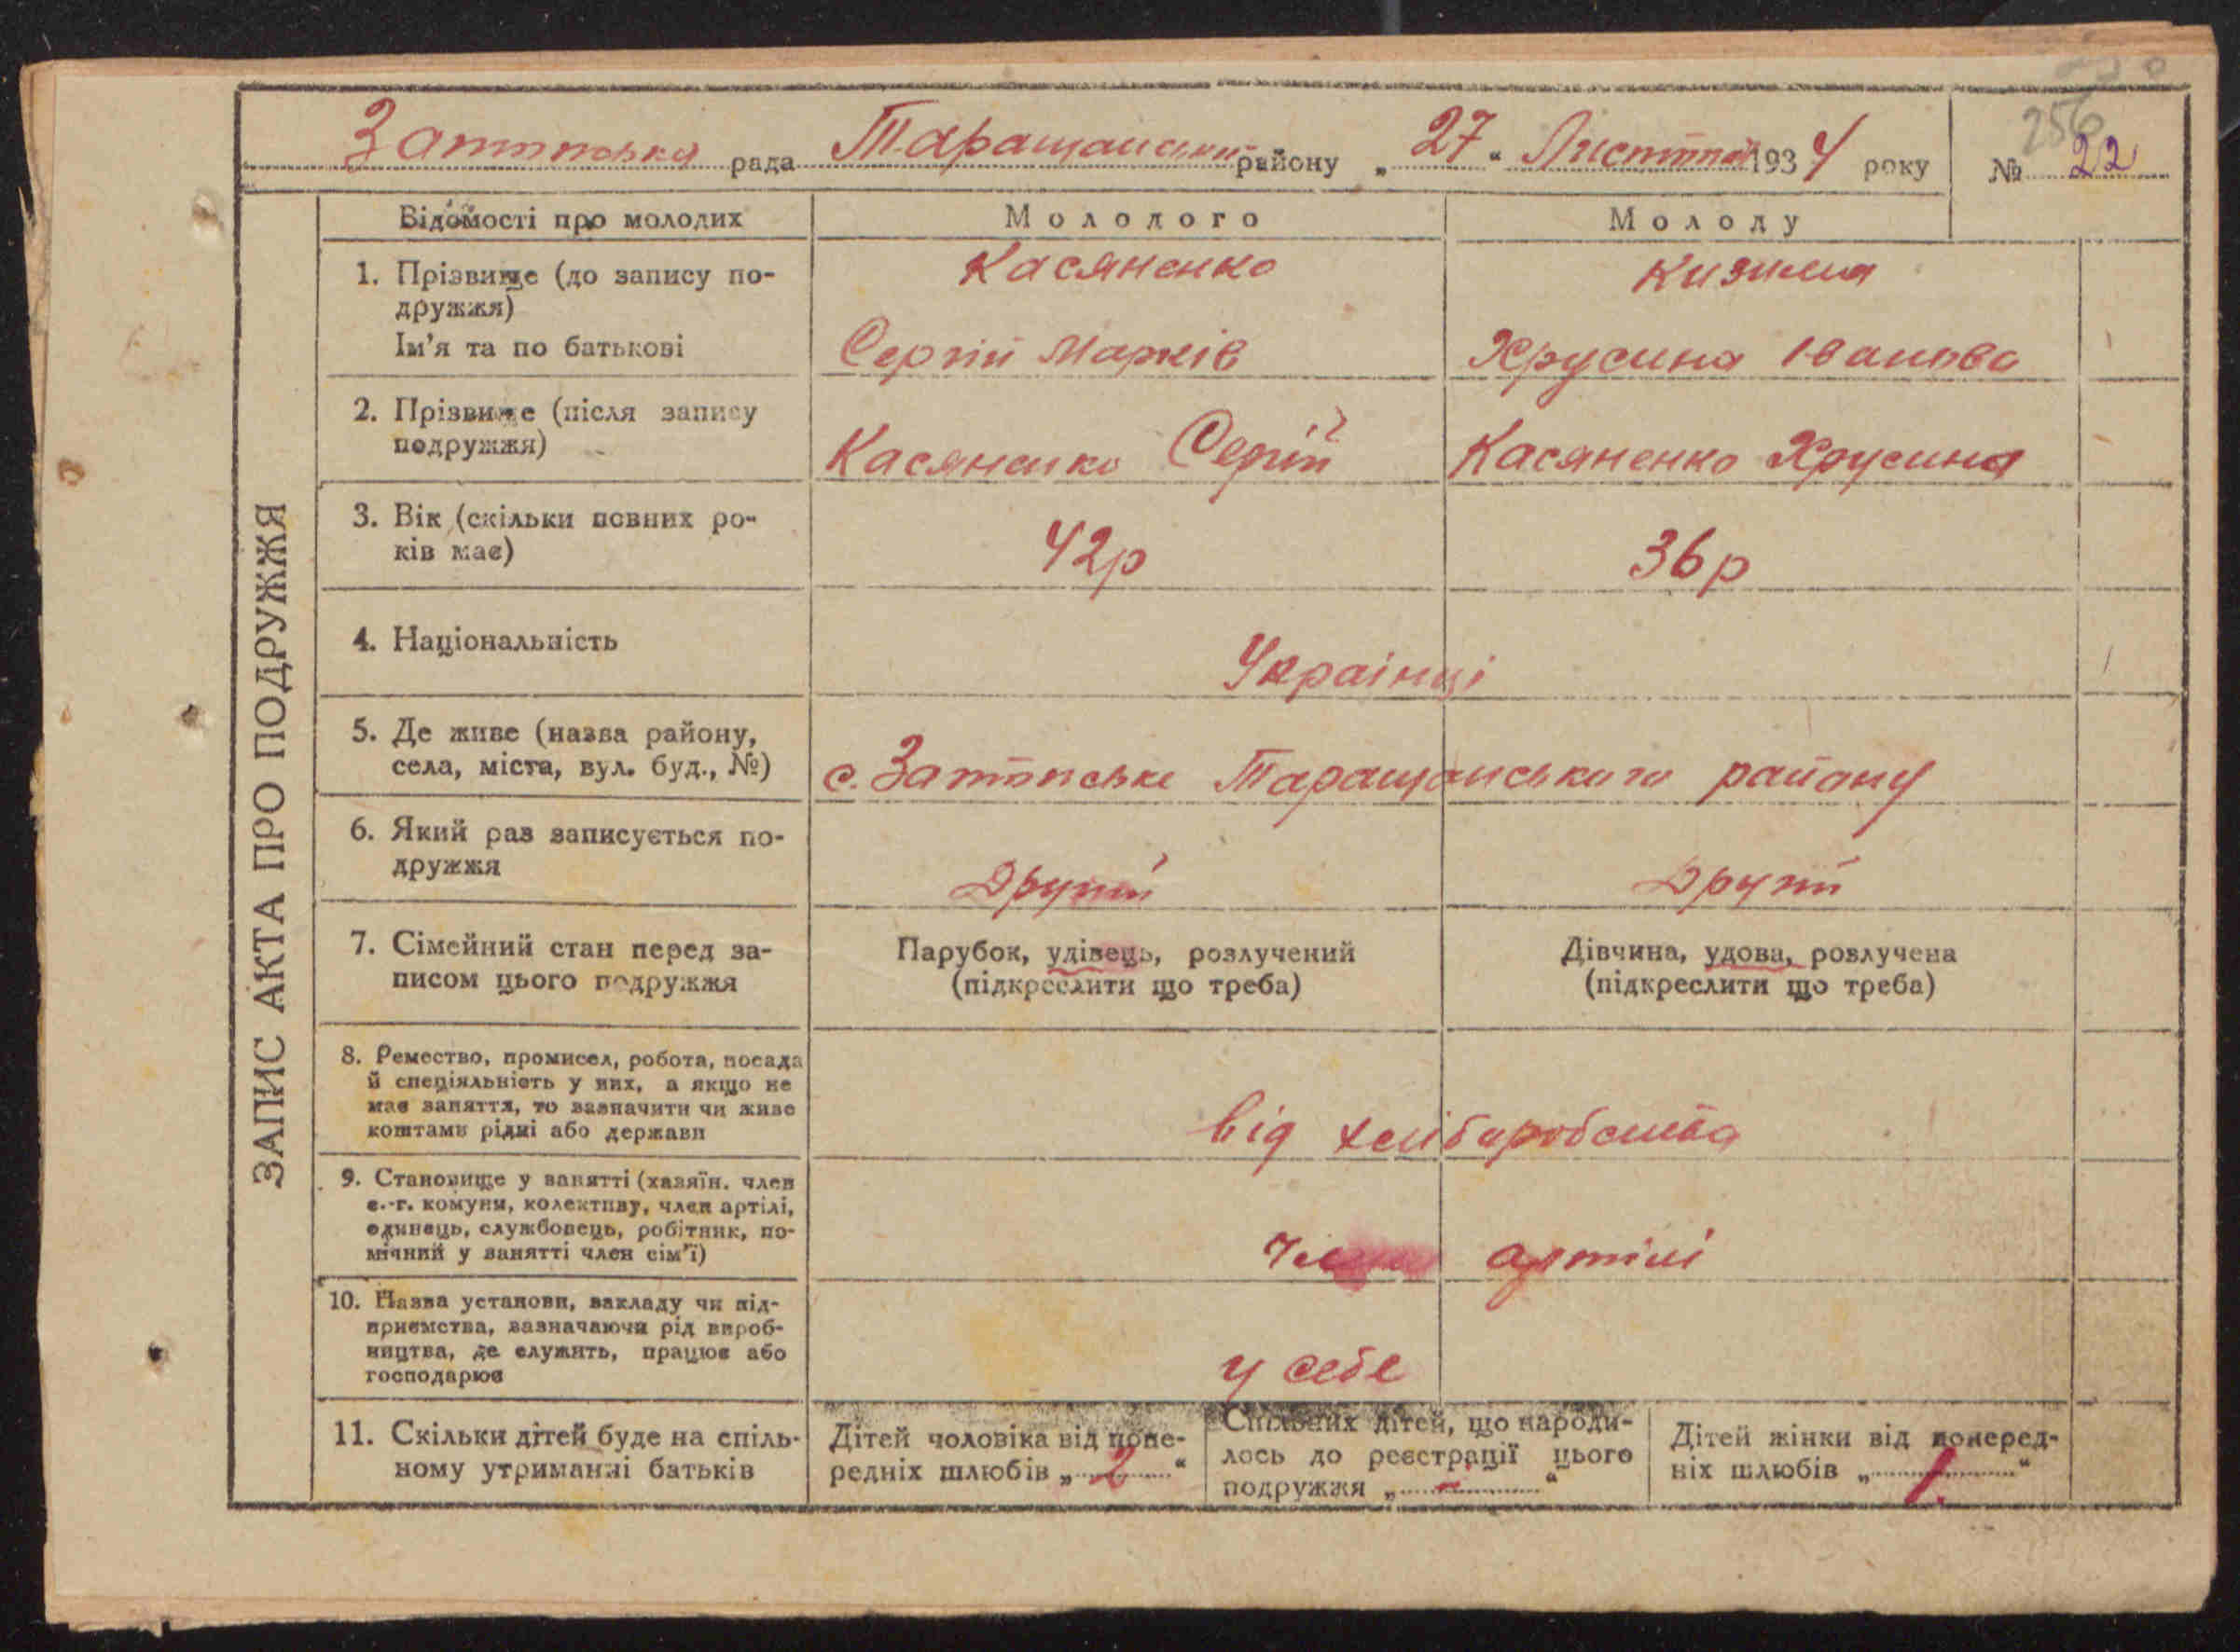 256
Затонська рада Таращанський району „27“ Листопад 1934 року № 22
ЗАПИС АКТА ПРО ПОДРУЖЖЯ
Відомості про молодих Молодого Молоду
1. Прізвище (до запису по-
дружжя)
Касяненко
Ім'я та по батькові Сергій Марків Хрусина Іванова
2. Прізвище (після запису
подружжя) Касяненко Сергій Касяненко Хрусина
3. Вік (скільки повних ро-
ків має) 42р 36р
4. Національність Українці
5. Де живе (назва району,
села, міста, вул. буд., №) с. Таращанського району
6. Який раз записується по-
дружжя Другий Другий
7. Сімейний стан перед за-
писом цього подружжя
Парубок, удівець, розлучений
(підкреслити що треба)
Дівчина, удова, розлучена
(підкреслити що треба)
8. Ремество, промисел, робота, посада
й спеціяльність у них, а якщо не
має заняття, то зазначити чи живе
коштами рідні або держави
від хліборобства
9. Становище у занятті (хазяїн. член
с.-г. комуни, колективу, член артілі,
одинець, службовець, робітник, по-
мічний у занятті член сім'ї)
члени артілі
10. Назва установи, закладу чи під-
приємства, зазначаючи рід вироб-
ництва, де служить, працює або
господарює
у себе
11. Скільки дітей буде на спіль-
ному утриманні батьків
Дітей чоловіка від попе-
редніх шлюбів „2“
Спільних дітей, що народи-
лось до реєстрації цього
подружжя „-“
Дітей жінки від поперед-
ніх шлюбів „1“